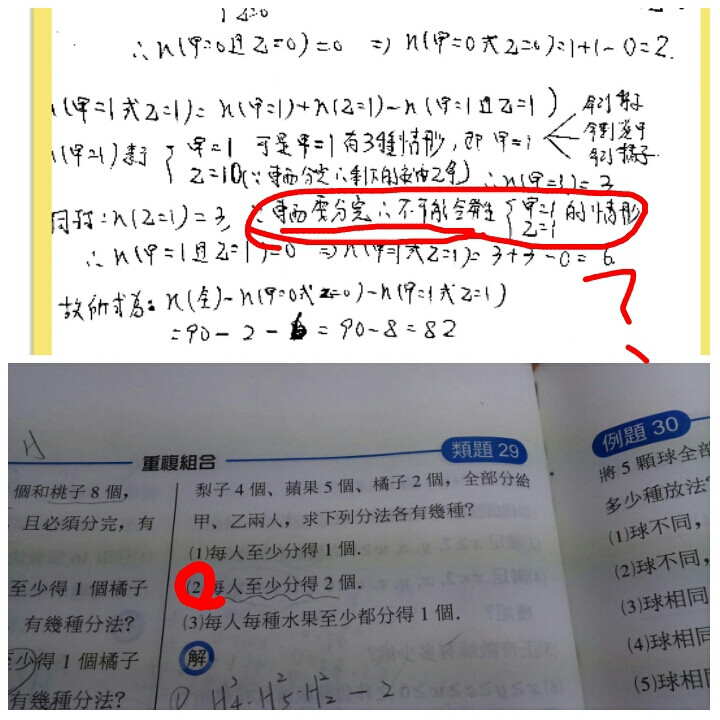 ∴n(甲=0且乙=0)=0 ⇒ n(甲=0或乙=0)=1+1-0=2.
n(甲=1或乙=1)=n(甲=1)+n(乙=1)-n(甲=1且乙=1)
甲=1 可是甲=1有3種情形,即 甲=1
分到梨子
分到蘋果
分到橘子
乙=10(∵東西分完∴剩下的要由乙拿) ∴n(甲=1)=3
同理:n(乙=1)=3, ∵東西要分完∴不可能會發生{甲=1 乙=1 的情形
∴n(甲=1且乙=1)=0 ⇒n(甲=1或乙=1)=3+3-0=6
故所求為: n(全)-n(甲=0或乙=0)-n(甲=1或乙=1)
=90-2-6=90-8=82
?
H
重複組合
類題 29
個和桃子 8 個,
且必須分完,有
至少得 1 個橘子
有幾種分法?
至少得 1 個橘子
有幾種分法?
梨子 4 個、蘋果 5 個、橘子 2 個,全部分給
甲、乙兩人,求下列分法各有幾種?
(1)每人至少分得 1 個.
(2)每人至少分得 2 個.
(3)每人每種水果至少都分得 1 個.
解
① H²₄·H²₅·H²₂-2
例題 30
將 5 顆球全部
多少種放法?
(1)球不同,
(2)球不同,
(3)球相同
(4)球相同
(5)球相同